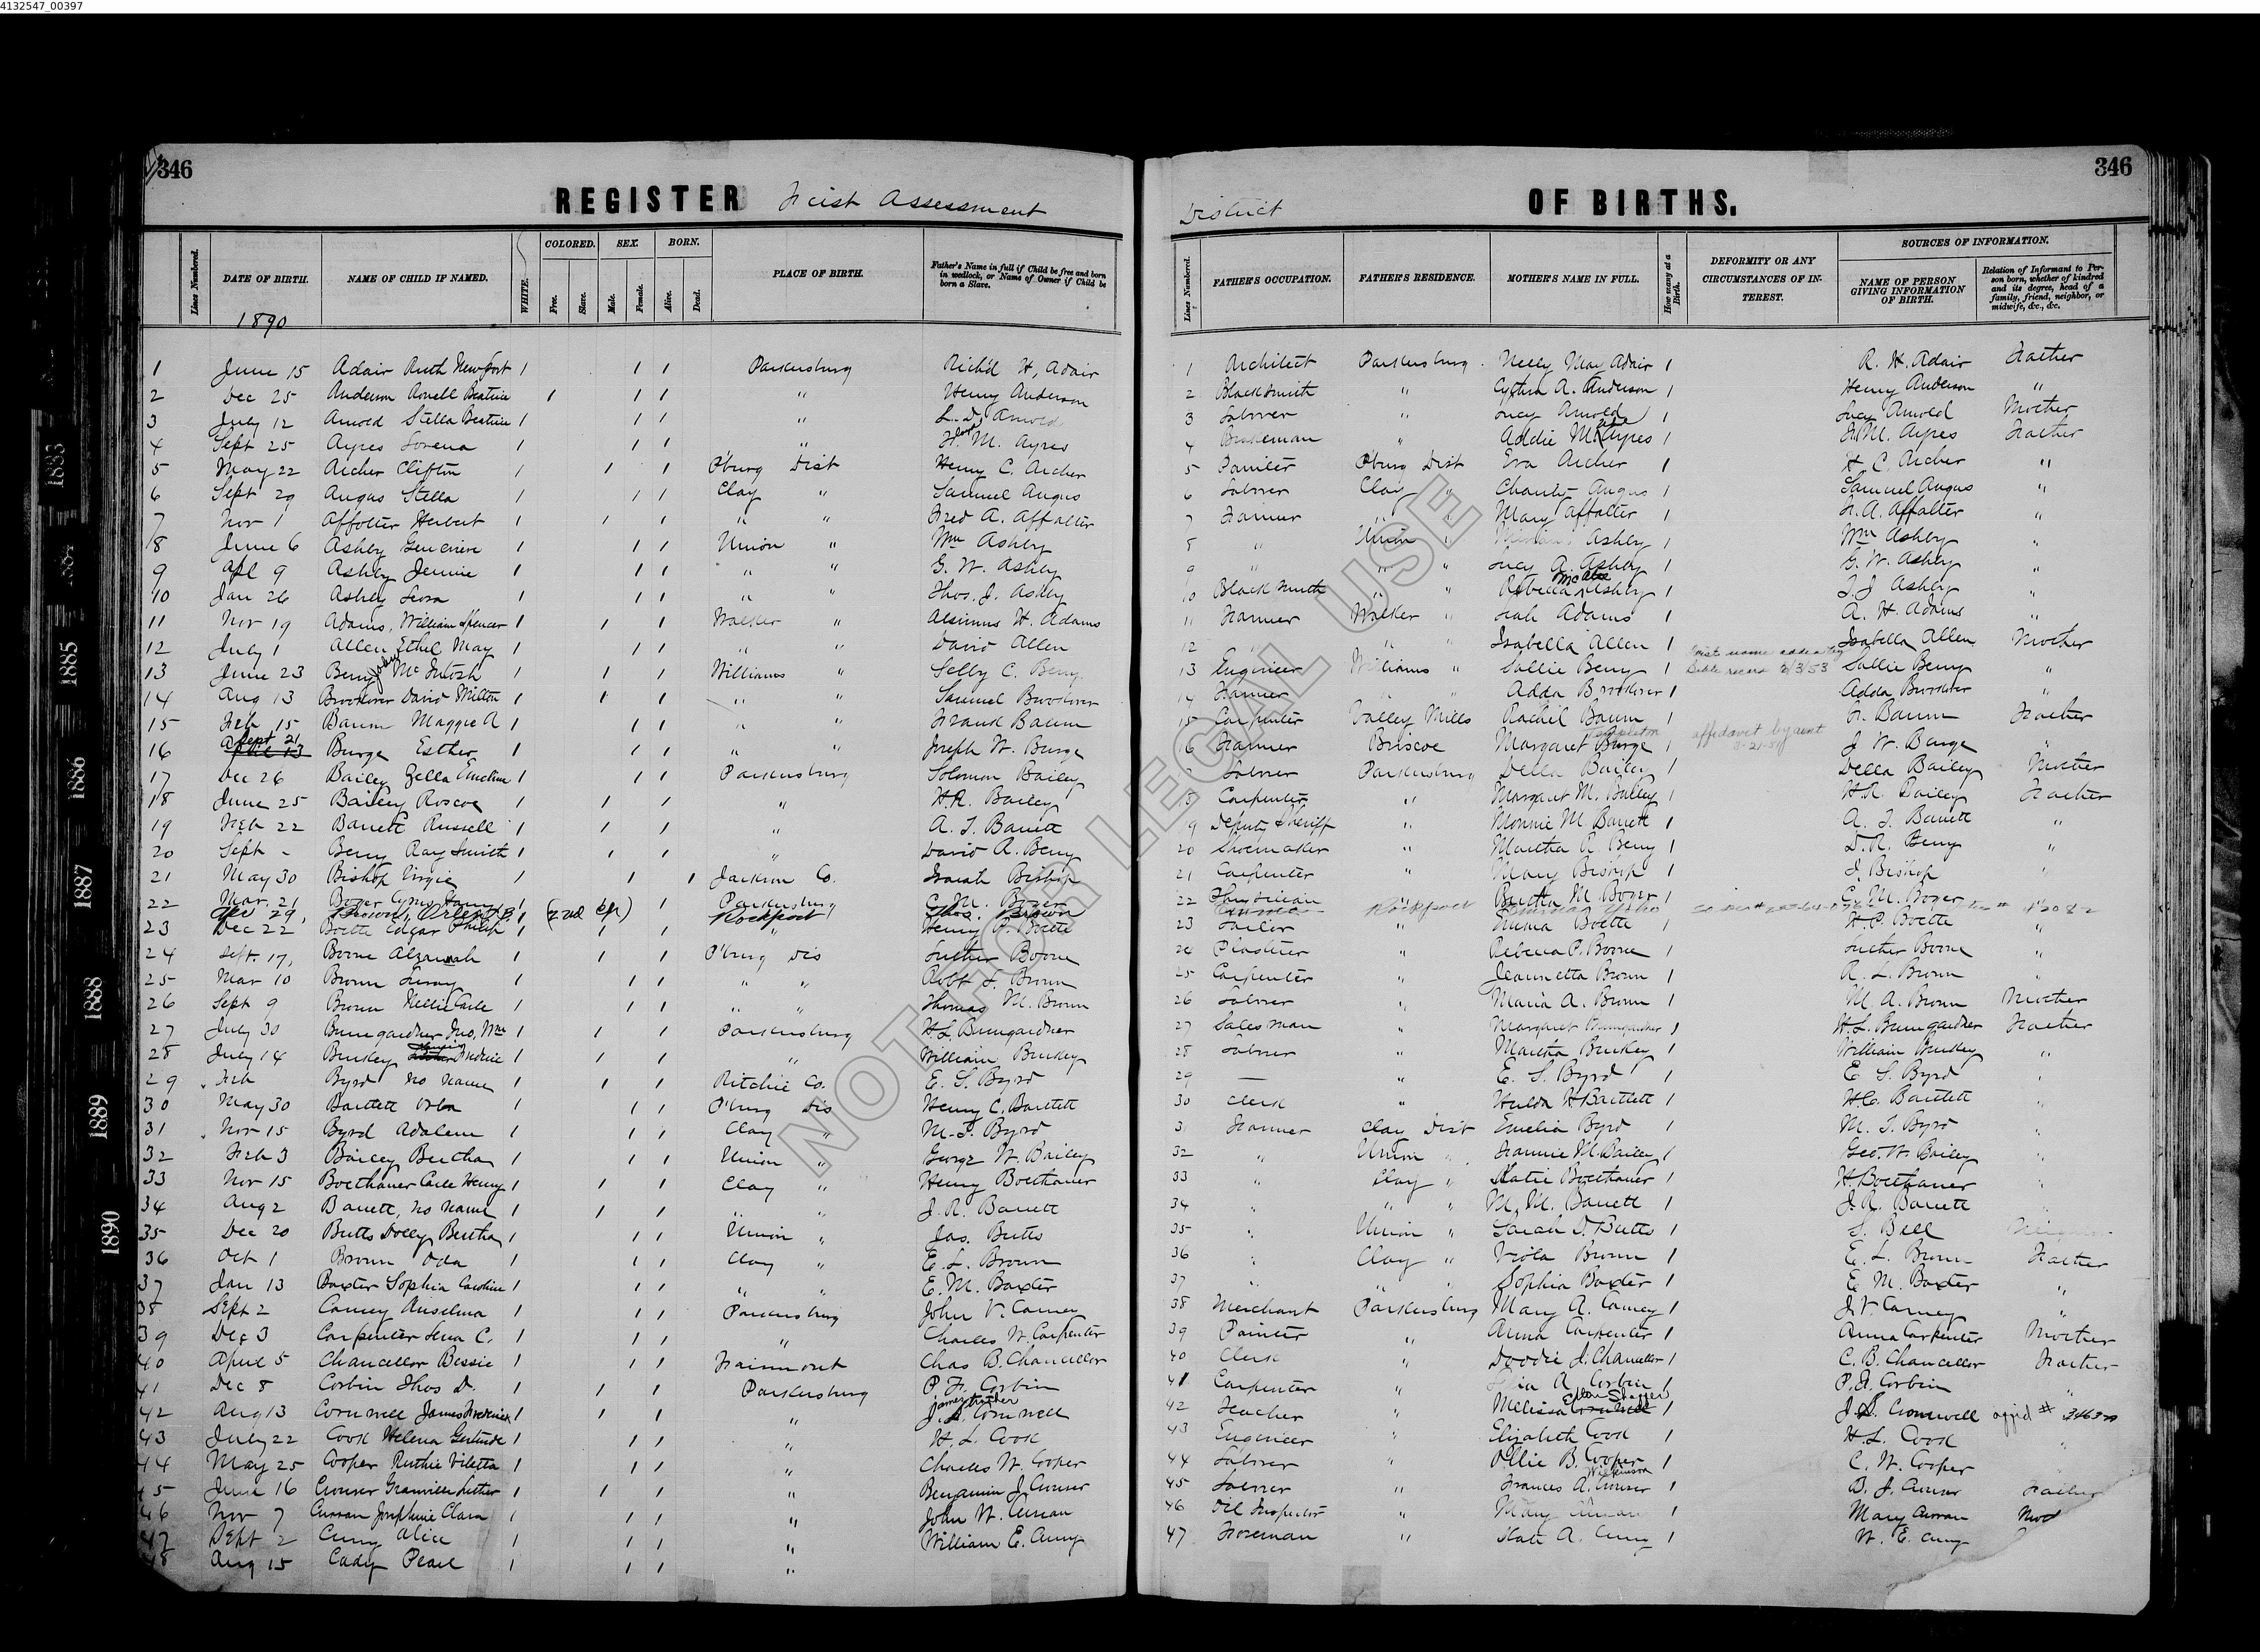 4132547_00397
346
REGISTER First Assessment
1833
1884
1885
1886
1887
1888
1889
1890
Lines Numbered.
DATE OF BIRTH.
NAME OF CHILD IF NAMED.
WHITE.
COLORED.
Free.
Slave.
SEX.
Male.
Female.
BORN.
Alive.
Dead.
PLACE OF BIRTH.
Father's Name in full if Child be free and born in wedlock, or Name of Owner if Child be born a Slave.
1890
1 June 15 Adair Ruth Newport 1 1 1 Parkersburg Rich'd H. Adair
2 Dec 25 Anderson Beatrice 1 1 1 " Henry Anderson
3 July 12 Arnold Stella Beatrice 1 1 1 " L. D. Arnold
4 Sept 25 Ayres Lorena 1 1 1 " M. Ayres
5 May 22 Archer Clifton 1 1 1 P'burg Dist Henry C. Archer
6 Sept 29 Angus Stella 1 1 1 Clay " Samuel Angus
7 Nov 1 Affolter Herbert 1 1 1 " " Fred A. Affolter
8 June 6 Ashby Genevieve 1 1 1 Union " Wm Ashby
9 Apl 9 Ashby Jennie 1 1 1 " " G. W. Ashby
10 Jan 26 Ashby Leora 1 1 1 " " Thos. J. Ashby
11 Nov 19 Adams, William Spencer 1 1 1 Walker " H. Adams
12 July 1 Allen Ethel May 1 1 1 " " David Allen
13 June 23 Berry John McIntosh 1 1 1 Williams " Selby C. Berry
14 Aug 13 Brookover David Milton 1 1 1 " " Samuel Brookover
15 Feb 15 Baum Maggie A 1 1 1 " " Frank Baum
16 Sept 21 April 13 Burge Esther 1 1 1 " " Joseph W. Burge
17 Dec 26 Bailey Zella Emeline 1 1 1 Parkersburg Solomon Bailey
18 June 25 Bailey Roscoe 1 1 1 " H.R. Bailey
19 Feb 22 Barrett Russell 1 1 1 " A. J. Barrett
20 Sept - Berry Ray Smith 1 1 1 " David R. Berry
21 May 30 Bishop Virgie 1 1 1 Jackson Co. Isaiah Bishop
22 Mar. 21 Boger Cyrus 1 1 Parkersburg C. M. Boger
29, Brown, (2nd Rockport Thos. Brown
23 Dec 22 Boette Edgar Philip 1 1 1 " Henry P. Boette
24 Sept. 17, Boone Alzanah 1 1 1 P'burg Dis Luther Boone
25 Mar 10 Brown Leroy 1 1 1 " " Robt L. Brown
26 Sept 9 Brown Nellie Carle 1 1 1 " " Thomas M. Brown
27 July 30 Bumgardner Jno. Wm 1 1 1 Parkersburg H.L. Bumgardner
28 July 14 Burkey Fredric 1 1 1 " William Burkey
29 Feb Byrd no name 1 1 1 Ritchie Co. E. S. Byrd
30 May 30 Bartlett Orba 1 1 1 P'burg Dis Henry C. Bartlett
31 Nov 15 Byrd Adalene 1 1 1 Clay " M. J. Byrd
32 Feb 3 Bailey Bertha 1 1 1 Union " George W. Bailey
33 Nov 15 Boethauer Carle Henry 1 1 1 Clay " Henry Boethauer
34 Aug 2 Barrett, no name 1 1 1 " " J. R. Barrett
35 Dec 20 Butts Dolly Bertha 1 1 1 Union " Jas. Butts
36 Oct 1 Brown Oda 1 1 1 Clay " E. L. Brown
37 Jan 13 Baxter Sophia Caroline 1 1 1 " " E. M. Baxter
38 Sept 2 Carney Anselma 1 1 1 Parkersburg John V. Carney
39 Dec 3 Carpenter Lena C. 1 1 1 " Charles W. Carpenter
40 April 5 Chancellor Bessie 1 1 1 Fairmont Chas B. Chancellor
41 Dec 8 Corbin Thos D. 1 1 1 Parkersburg P. F. Corbin
42 Aug 13 Cornwell James Frederick 1 1 1 " J. Cornwell
43 July 22 Cook Helena Gertrude 1 1 1 " H. L. Cook
44 May 25 Cooper Ruthie Viletta 1 1 1 " Charles W. Cooper
45 June 16 Crouser Granville Luther 1 1 1 " Benjamin J. Crouser
46 Nov 7 Curran Josephine Clara 1 1 1 " John W. Curran
47 Sept 2 Curry Alice 1 1 1 " William E. Curry
48 Aug 15 Cady Pearl 1 1 1 "
346
District OF BIRTHS.
Lines Numbered.
FATHER'S OCCUPATION.
FATHER'S RESIDENCE.
MOTHER'S NAME IN FULL.
How many at a Birth.
DEFORMITY OR ANY CIRCUMSTANCES OF INTEREST.
SOURCES OF INFORMATION.
NAME OF PERSON GIVING INFORMATION OF BIRTH.
Relation of Informant to Person born, whether of kindred and its degree, head of a family, friend, neighbor, or midwife, &c., &c.
1 Architect Parkersburg Nelly May Adair 1 R. H. Adair Father
2 Blacksmith " Cynthia A. Anderson 1 Henry Anderson "
3 Laborer " Lucy Arnold 1 Lucy Arnold Mother
4 Brakeman " Addie M. Ayres 1 M. Ayres Father
5 Painter P'burg Dist Eva Archer 1 H. C. Archer "
6 Laborer Clay " Charity Angus 1 Samuel Angus "
7 Farmer " " Mary Affolter 1 F. A. Affolter "
8 " Union " Ashby 1 Wm Ashby "
9 " " " Lucy A. Ashby 1 G. W. Ashby "
10 Blacksmith " " Rebecca McAtee Ashby 1 T. J. Ashby "
11 Farmer Walker " Leah Adams 1 A. H. Adams "
12 " " " Isabella Allen 1 Isabella Allen Mother
13 Engineer Williams " Sallie Berry 1 first name added by Bible record 2/3/53 Sallie Berry "
14 Farmer " " Adda Brookover 1 Adda Brookover "
15 Carpenter Valley Mills Rachel Baum 1 F. Baum Father
16 Farmer Briscoe Margaret Burge 1 affidavit by aunt J. W. Burge "
17 Laborer Parkersburg Della Bailey 1 Della Bailey Mother
18 Carpenter " Margaret M. Bailey 1 H.R. Bailey Father
19 Deputy Sheriff " Monnie M Barrett 1 A. J. Barrett "
20 Shoemaker " Martha R. Berry 1 D.R. Berry "
21 Carpenter " Mary Bishop 1 I. Bishop "
22 Physician " Bertha M. Boger 1 C. M. Boger "
Rockport
23 Tailor " Emma Boette 1 H.P. Boette "
24 Plasterer " Rebecca P. Boone 1 Luther Boone "
25 Carpenter " Jeannetta Brown 1 R. L. Brown "
26 Laborer " Maria A. Brown 1 M. A. Brown Mother
27 Salesman " Margaret Bumgardner 1 H.L. Bumgardner Father
28 Laborer " Martha Burkey 1 William Burkey "
29 — " E. S. Byrd 1 E S. Byrd "
30 Clerk " Hulda H Bartlett 1 H.C. Bartlett "
31 Farmer Clay Dist Emelia Byrd 1 M. J. Byrd "
32 " Union " Fannie M. Bailey 1 Geo. W. Bailey "
33 " Clay " Katie Boethauer 1 H. Boethauer "
34 " " " M. M. Barrett 1 J. R. Barrett "
35 " Union " Sarah D. Butts 1 S. Bell
36 " Clay " Viola Brown 1 E. L. Brown Father
37 " " " Sophia Baxter 1 E. M. Baxter "
38 Merchant Parkersburg Mary A. Carney 1 J. V. Carney "
39 Painter " Anna Carpenter 1 Anna Carpenter Mother
40 Clerk " Doodie J. Chancellor 1 C. B. Chancellor Father
41 Carpenter " A. Corbin 1 P. F. Corbin "
42 Teacher " Melissa Cornwell 1 J. Cromwell
43 Engineer " Elizabeth Cook 1 H. L. Cook "
44 Laborer " Ollie B. Cooper 1 C. W. Cooper
45 Laborer " Frances A. Wilkinson Crouser 1 B. J. Crouser Father
46 Oil Inspector " Mary Curran 1 Mary Curran
47 Foreman " Kate A. Curry 1 W. E. Curry
NOT FOR LEGAL USE